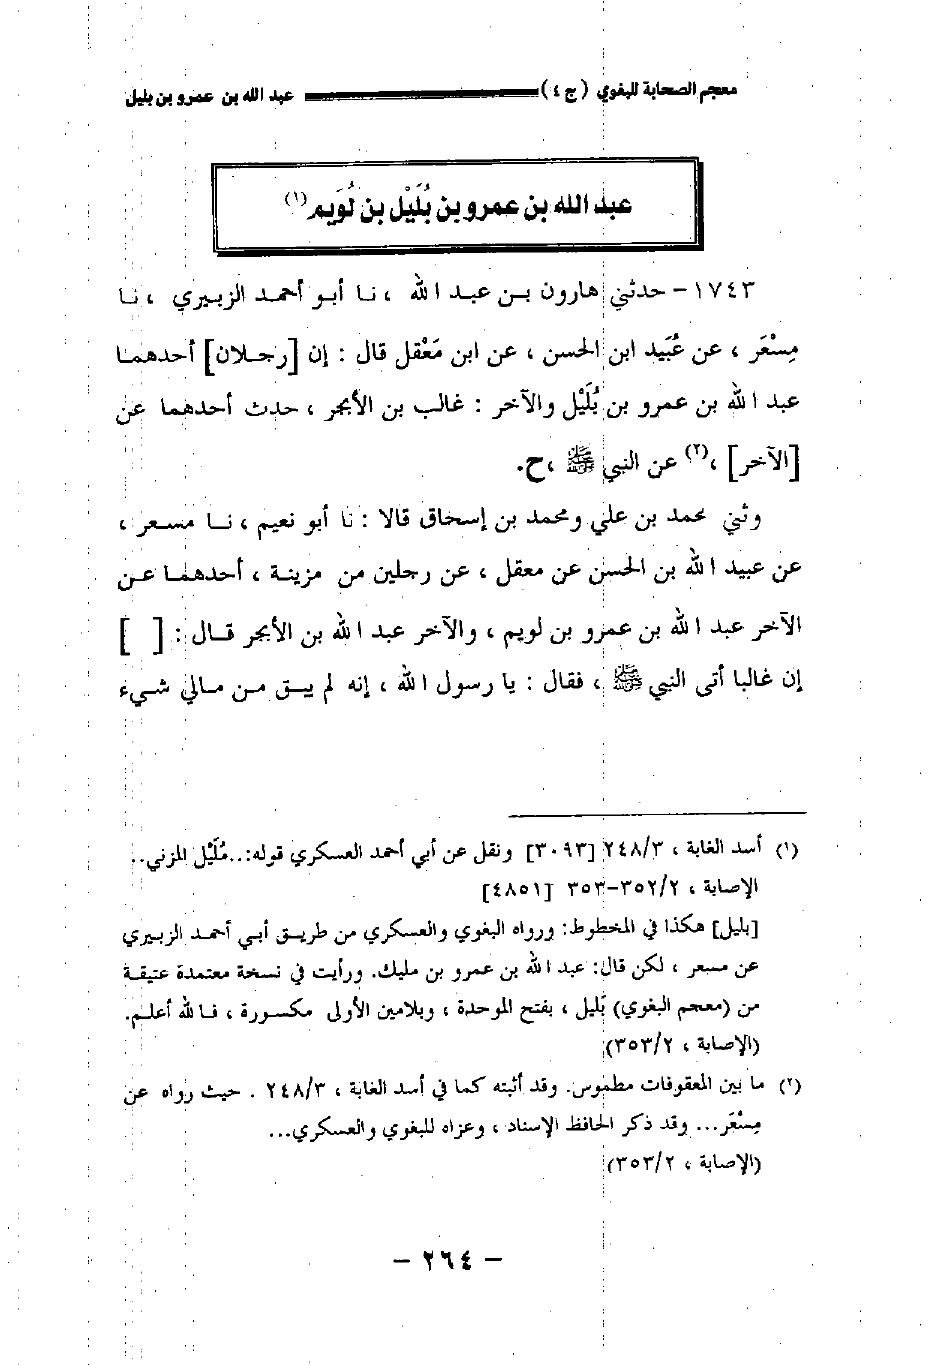 معجم الصحابة للبغوي (ج ٤) عبد الله بن عمرو بن بليل
عبد الله بن عمرو بن بُلَيْل بن لُوَيم(١)
١٧٤٣- حدثني هارون بـن عبـد الله ، نـا أبـو أحمـد الزبـيري ، نـا
مِسْعَر ، عن عُبَيد ابن الحسن ، عن ابن مَعْقل قال : إن [رجـلان] أحدهمـا
عبد الله بن عمرو بن بُلَيْل والآخر : غالب بن الأبجر ، حدث أحدهما عن
[الآخر] ،(٢) عن النبي ﷺ ،ح.
وثني محمد بن علي ومحمد بن إسحاق قالا : نا أبو نعيم ، نـا مسـعر ،
عن عبيد الله بن الحسن عن معقل ، عن رجلين من مزينـة ، أحدهمـا عـن
الآخر عبد الله بن عمرو بن لويم ، والآخر عبد الله بن الأبجر قـال : [ ]
إن غالبا أتى النبي ﷺ ، فقال : يا رسول الله ، إنه لم يبـق مـن مـالي شـيء
(١) أسد الغابة ، ٢٤٨/٣ [٣٠٩٣] ونقل عن أبي أحمد العسكري قوله:..مُلَيْل المزني..
الإصابة ، ٣٥٢/٢-٣٥٣ [٤٨٥١]
[بليل] هكذا في المخطوط: ورواه البغوي والعسكري من طريـق أبـي أحمـد الزبـيري
عن مسعر ، لكن قال: عبد الله بن عمرو بن مليك. ورأيت في نسخة معتمدة عتيقـة
من (معجم البغوي) بَليل ، بفتح الموحدة ، وبلامين الأولى مكسـورة ، فـالله أعلـم.
(الإصابة ، ٣٥٣/٢)
(٢) ما بين المعقوفات مطموس. وقد أثبته كما في أسد الغابة ، ٢٤٨/٣ . حيث رواه عن
مِسْعَر... وقد ذكر الحافظ الإسناد ، وعزاه للبغوي والعسكري...
(الإصابة ، ٣٥٣/٢)
- ٢٦٤ -